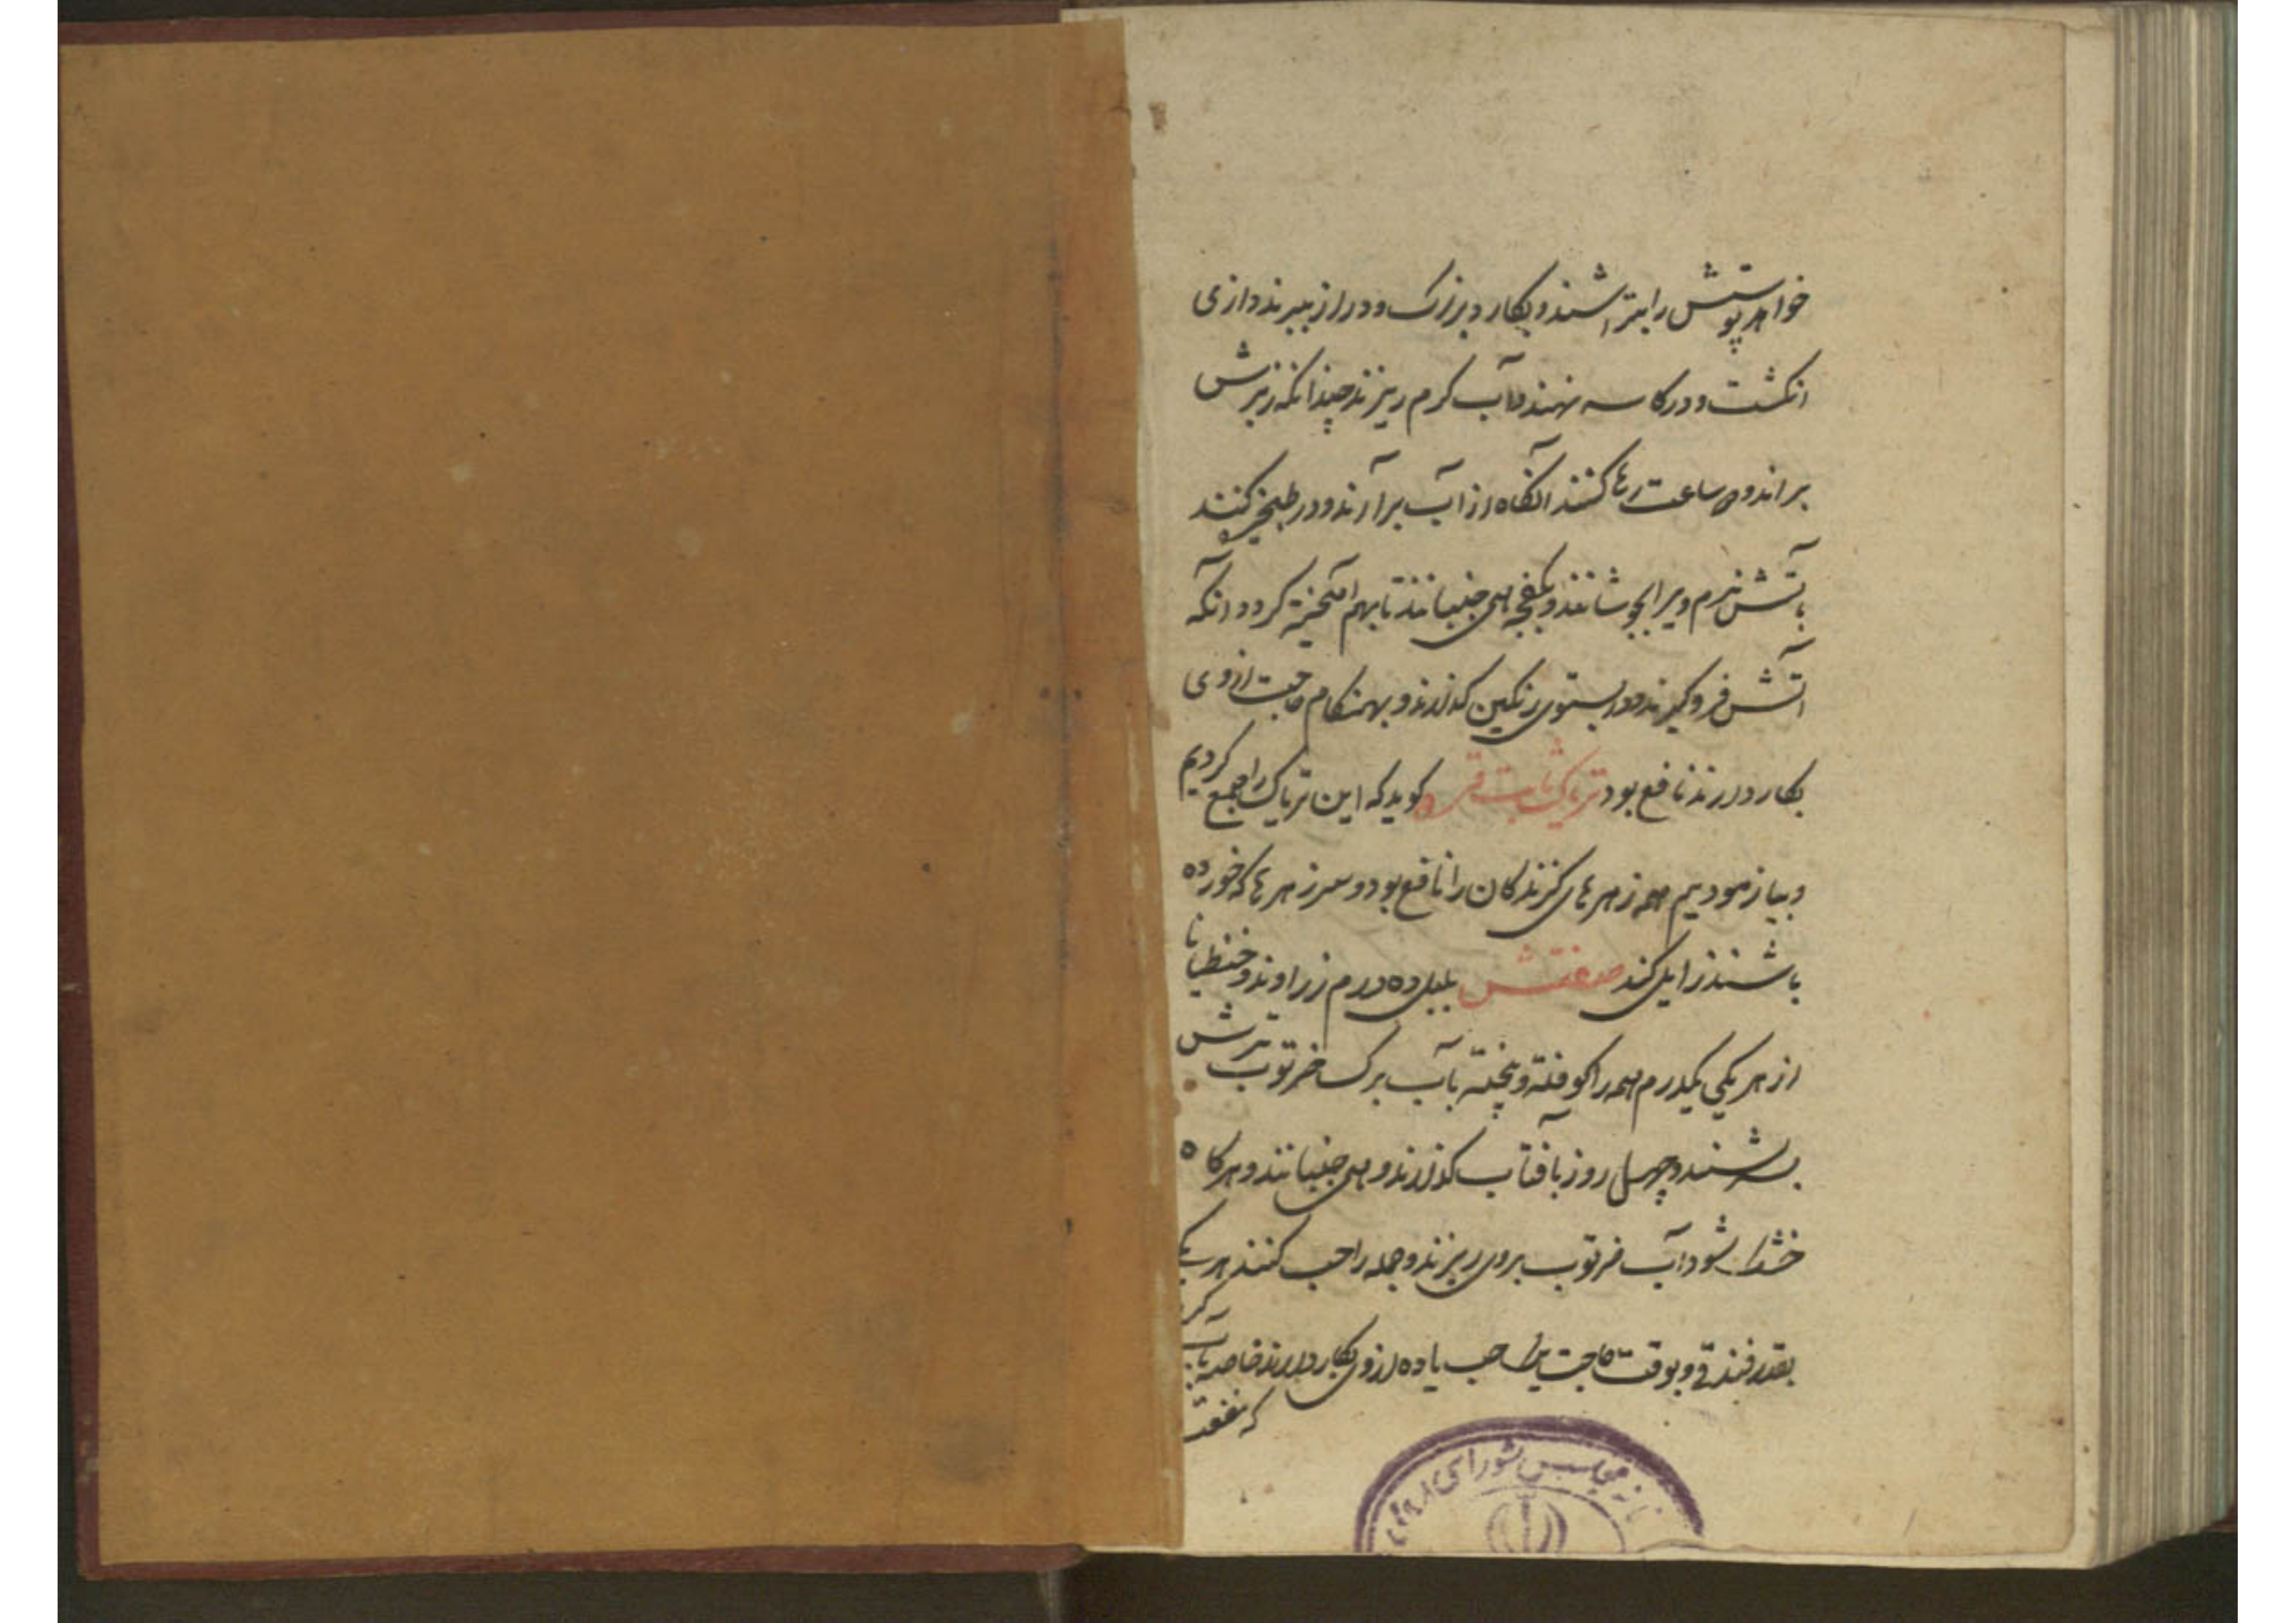 خواهر پوستش را بتراشند و بکارد بزرک و دراز ببرند دازی
انکشت و در کاسه نهند و آب کرم ریزند چندانکه زبرش
براند و ساعت رها کنند آنکاه از آب برآرند و در طنجیر کنند
بآتش نرم ویرا بجوشانند و بکفچه همی جنبانند تا بهم آمیخته کردد آنکه
آتش فروکیرند و در بستوی رنکین کذارند و بهنکام حاجت از وی
بکار دارند نافع بود تریاک ثابت قره کوید که این تریاک را جمع کردیم
و بیازمودیم همه زهرهای کزندکان را نافع بود و سر زهرها که خورده
باشند زایل کند صفتش پلپل ده درم زراوند و جنطیانا
از هر یکی یکدرم همه را کوفته و پخته بآب برک خرتوب ترش
بسرشند و چهل روز بآفتاب کذارند و همی جنبانند و هرکاه
خشک شود آب خرتوب بروی ریزند و جمله را حب کنند هر یکی
بقدر فندقی و بوقت حاجت یک حب یا ده از وی بکار دارند خاصه بآب کرم
که منفعت
مجلس شورای